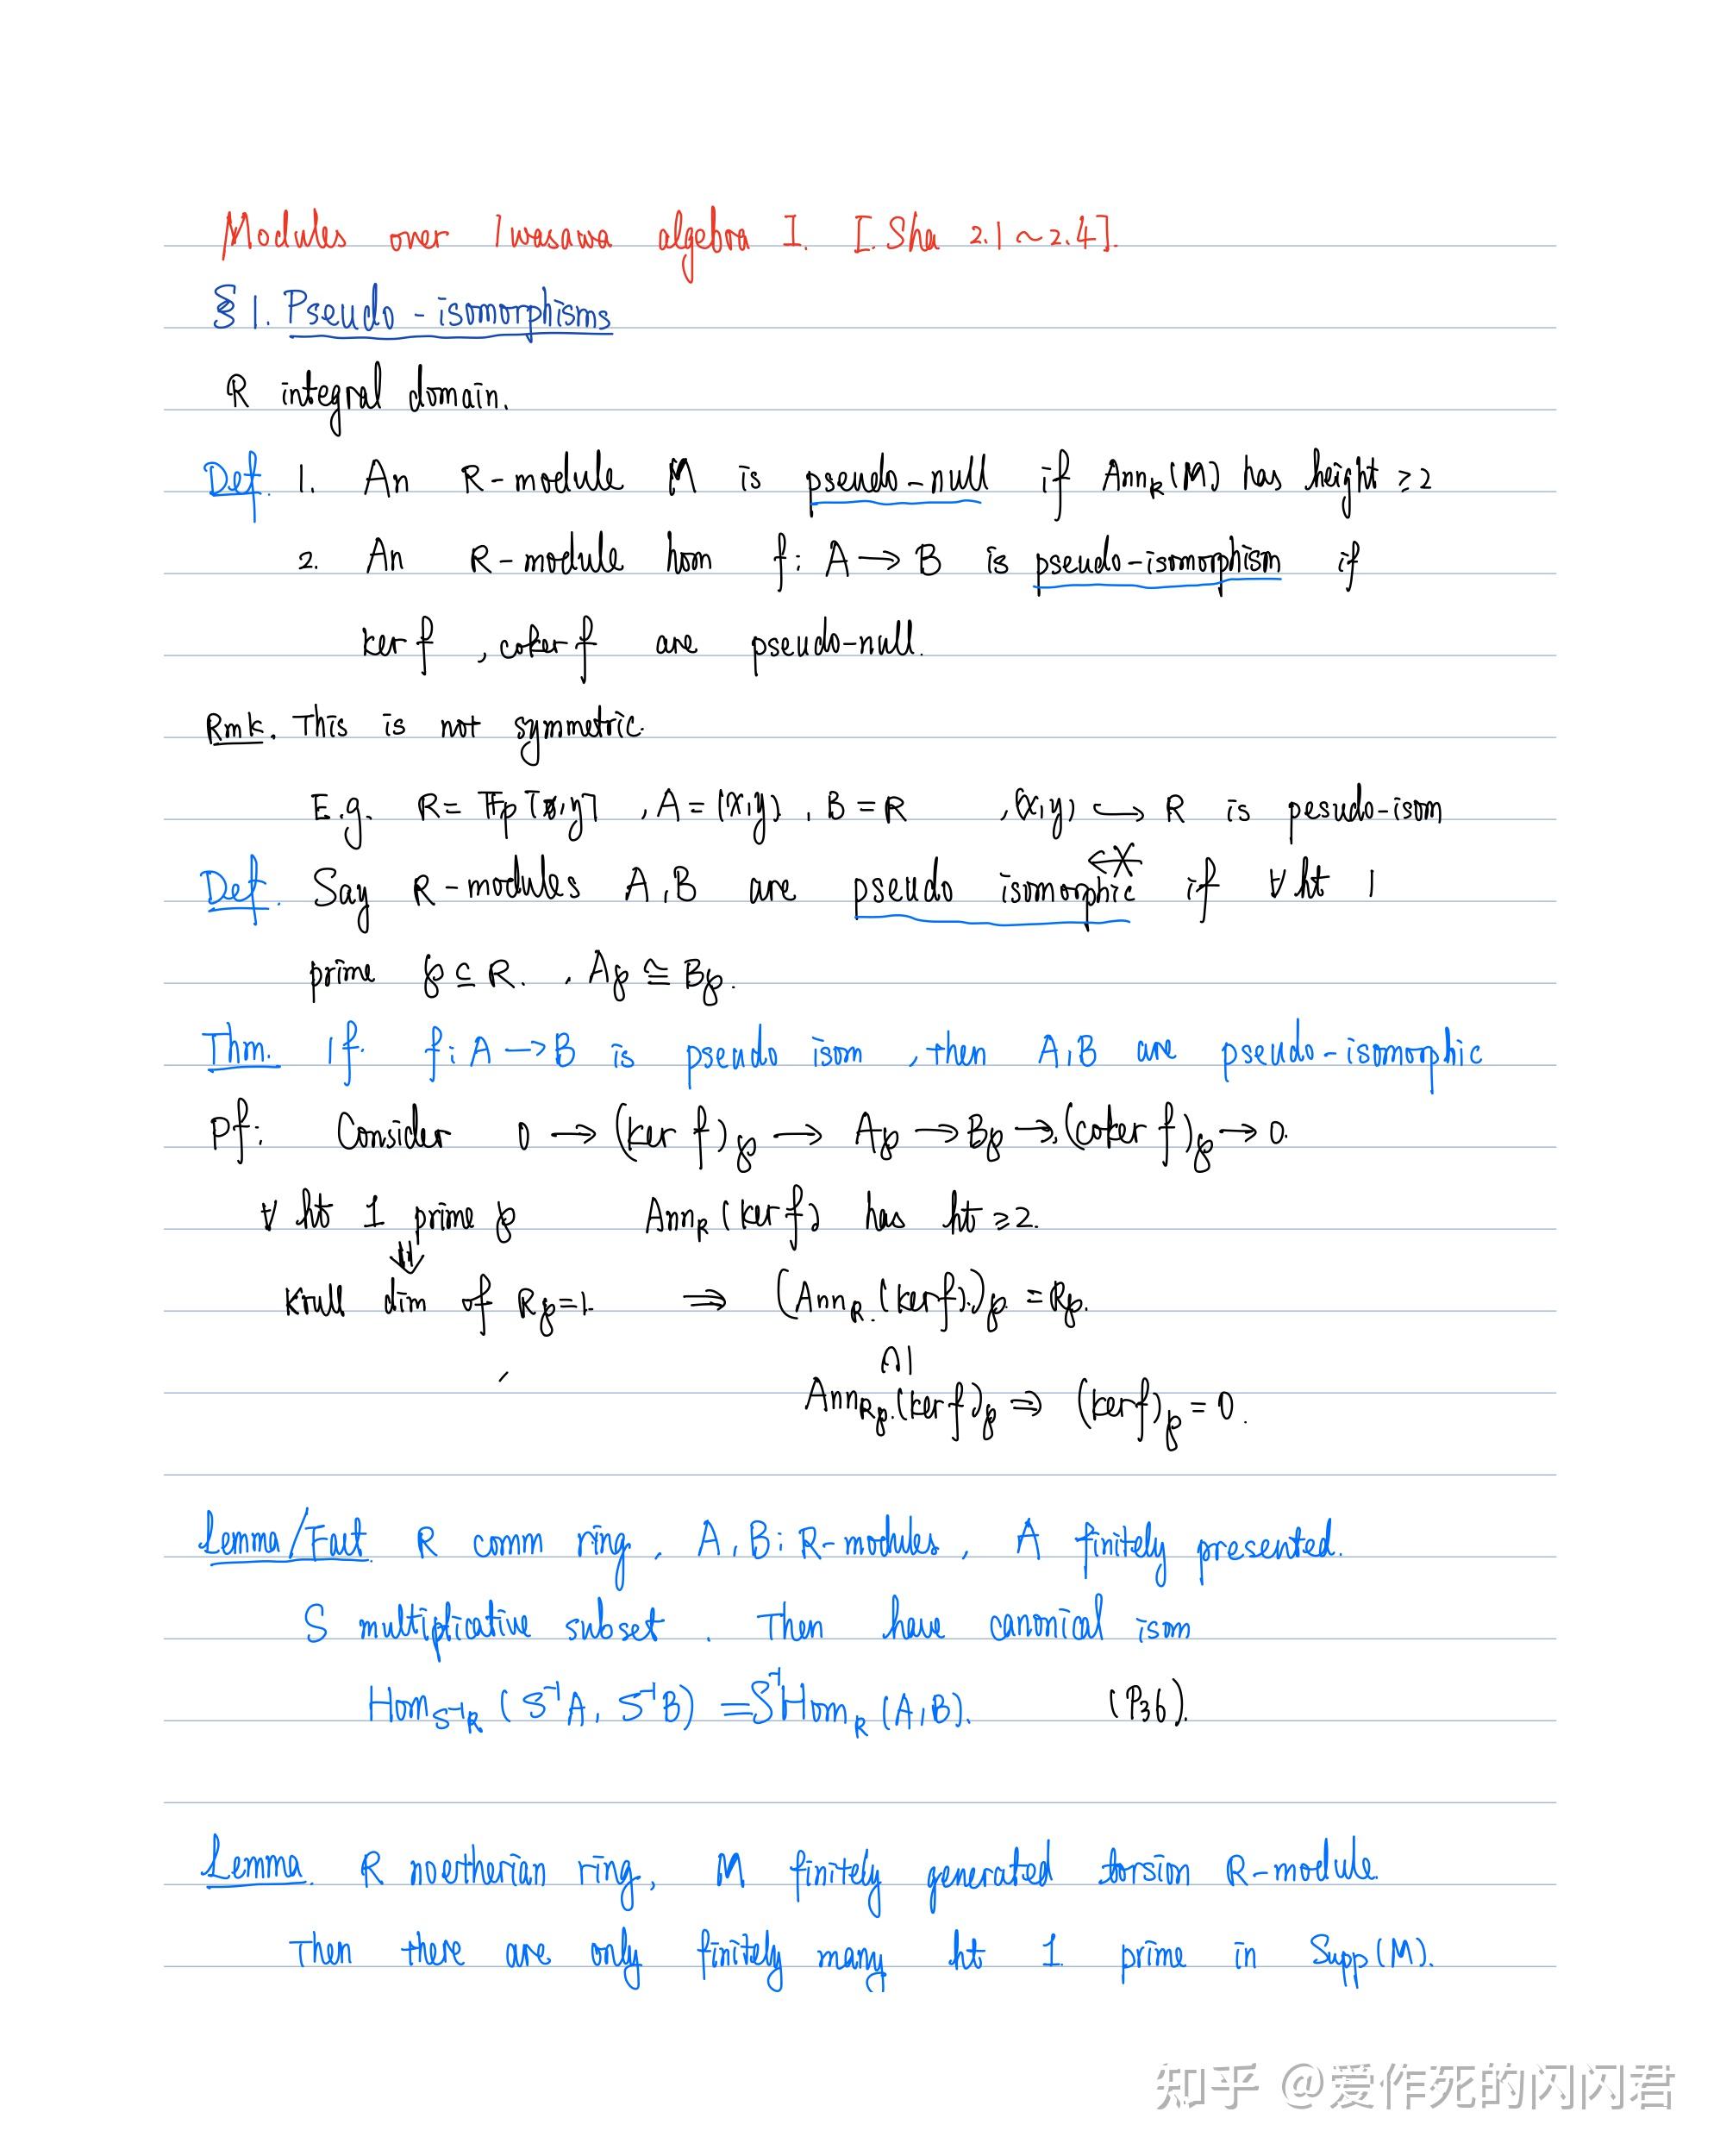 Modules over Iwasawa algebra I. [Sha 2.1~2.4].
§1. Pseudo-isomorphisms
R integral domain.
Def. 1. An R-module M is pseudo-null if Ann_R(M) has height ≥2
2. An R-module hom f: A → B is pseudo-isomorphism if
ker f, coker f are pseudo-null.
Rmk. This is not symmetric.
E.g. R = 𝔽p[x,y], A = (x,y), B = R, (x,y) ↪ R is pesudo-isom
Def. Say R-modules A, B are pseudo isomorphic if ∀ ht 1
prime ℘ ⊆ R., A℘ ≅ B℘.
Thm. If f: A → B is pseudo isom, then A, B are pseudo-isomorphic
Pf: Consider 0 → (ker f)℘ → A℘ → B℘ → (coker f)℘ → 0.
∀ ht 1 prime ℘ Ann_R(ker f) has ht ≥2.
⇓
Krull dim of R℘=1. ⇒ (Ann_R(ker f))℘ = R℘.
∩|
Ann_{R℘}(ker f)℘ ⇒ (ker f)℘ = 0.
Lemma/Fact. R comm ring, A, B: R-modules, A finitely presented.
S multiplicative subset. Then have canonical isom
Hom_{S⁻¹R}(S⁻¹A, S⁻¹B) = S⁻¹Hom_R(A,B). (P36).
Lemma. R noetherian ring, M finitely generated torsion R-module
Then there are only finitely many ht 1 prime in Supp(M).
知乎 @爱作死的闪闪君